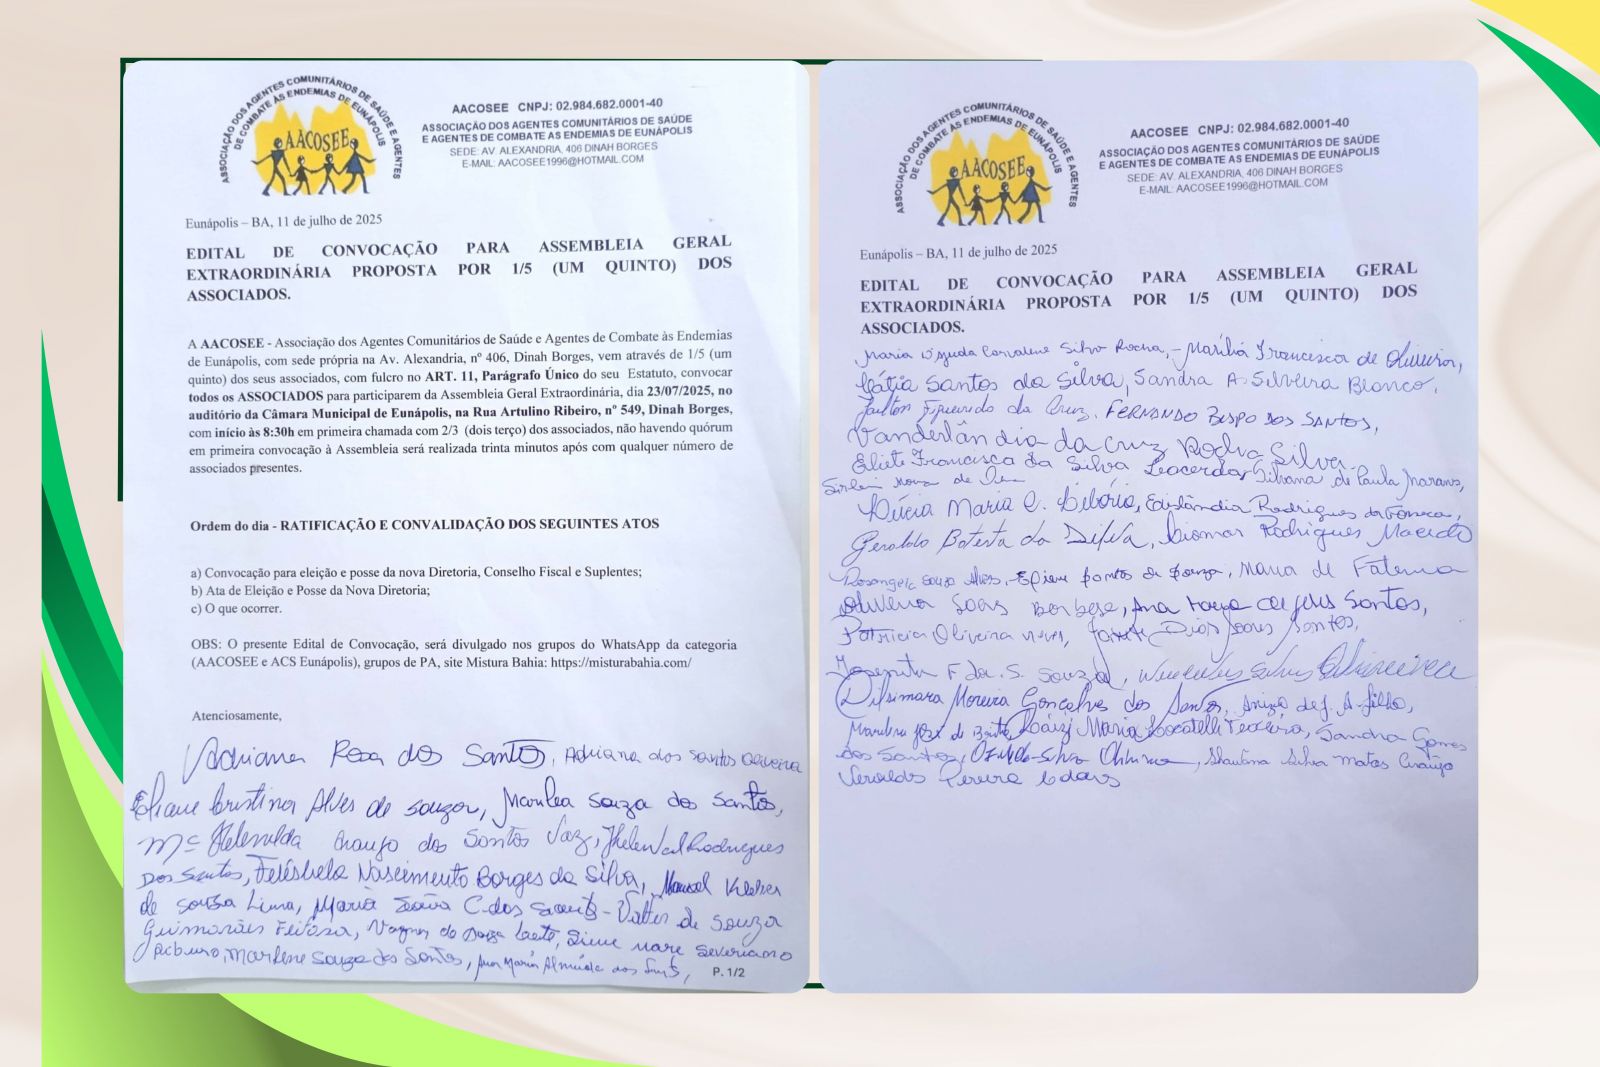 ASSOCIAÇÃO DOS AGENTES COMUNITÁRIOS DE SAÚDE E AGENTES
DE COMBATE ÀS ENDEMIAS DE EUNÁPOLIS
AACOSEE
AACOSEE CNPJ: 02.984.682.0001-40
ASSOCIAÇÃO DOS AGENTES COMUNITÁRIOS DE SAÚDE
E AGENTES DE COMBATE AS ENDEMIAS DE EUNÁPOLIS
SEDE: AV. ALEXANDRIA, 406 DINAH BORGES
E-MAIL: AACOSEE1996@HOTMAIL.COM
Eunápolis – BA, 11 de julho de 2025
EDITAL DE CONVOCAÇÃO PARA ASSEMBLEIA GERAL
EXTRAORDINÁRIA PROPOSTA POR 1/5 (UM QUINTO) DOS
ASSOCIADOS.
A AACOSEE - Associação dos Agentes Comunitários de Saúde e Agentes de Combate às Endemias
de Eunápolis, com sede própria na Av. Alexandria, nº 406, Dinah Borges, vem através de 1/5 (um
quinto) dos seus associados, com fulcro no ART. 11, Parágrafo Único do seu Estatuto, convocar
todos os ASSOCIADOS para participarem da Assembleia Geral Extraordinária, dia 23/07/2025, no
auditório da Câmara Municipal de Eunápolis, na Rua Artulino Ribeiro, nº 549, Dinah Borges,
com início às 8:30h em primeira chamada com 2/3 (dois terço) dos associados, não havendo quórum
em primeira convocação à Assembleia será realizada trinta minutos após com qualquer número de
associados presentes.
Ordem do dia - RATIFICAÇÃO E CONVALIDAÇÃO DOS SEGUINTES ATOS
a) Convocação para eleição e posse da nova Diretoria, Conselho Fiscal e Suplentes;
b) Ata de Eleição e Posse da Nova Diretoria;
c) O que ocorrer.
OBS: O presente Edital de Convocação, será divulgado nos grupos do WhatsApp da categoria
(AACOSEE e ACS Eunápolis), grupos de PA, site Mistura Bahia: https://misturabahia.com/
Atenciosamente,
Adriana Rosa dos Santos, Adriana dos Santos Oliveira
Eliane Cristina Alves de Souza, Marilea Souza dos Santos,
Mª Helenilda Araujo dos Santos Vaz, Rodrigues
Dos Santos, Nascimento Borges da Silva, Manoel Kleber
de Sousa Lima, Maria C. dos Santos - Valter de Souza
Guimarães Feitosa, Vagner de Souza Severiano
Marlene Souza dos Santos, Ana Maria Almeida dos
P. 1/2
ASSOCIAÇÃO DOS AGENTES COMUNITÁRIOS DE SAÚDE E AGENTES
DE COMBATE ÀS ENDEMIAS DE EUNÁPOLIS
AACOSEE
AACOSEE CNPJ: 02.984.682.0001-40
ASSOCIAÇÃO DOS AGENTES COMUNITÁRIOS DE SAÚDE
E AGENTES DE COMBATE AS ENDEMIAS DE EUNÁPOLIS
SEDE: AV. ALEXANDRIA, 406 DINAH BORGES
E-MAIL: AACOSEE1996@HOTMAIL.COM
Eunápolis – BA, 11 de julho de 2025
EDITAL DE CONVOCAÇÃO PARA ASSEMBLEIA GERAL
EXTRAORDINÁRIA PROPOSTA POR 1/5 (UM QUINTO) DOS
ASSOCIADOS.
Maria Silva Rocha, - Marília Francisca de Oliveira,
Cátia Santos da Silva, Sandra A. Silveira Bronco,
Jailton Figueiredo da Cruz, FERNANDO BISPO DOS SANTOS,
Vanderlândia da Cruz Rocha Silva
Eliete Francisca da Silva Silvana de Paula
Sirlei
Lúcia Maria C. Libório, Edislândia Rodrigues da Fonseca,
Geraldo Batista da Silva, Rodrigues Macedo
Rosangela Souza Alves, Maria de Fatima
Oliveira Santos,
Patricia Oliveira Neves, Dias Soares Santos,
F. da. S. Souza,
Dilsimara Moreira Gonçalves dos Santos, A. filho,
de Brito, Maria Locatelli Teixeira, Sandra Gomes
dos Santos, Silva Silva Matos Araújo
Pereira